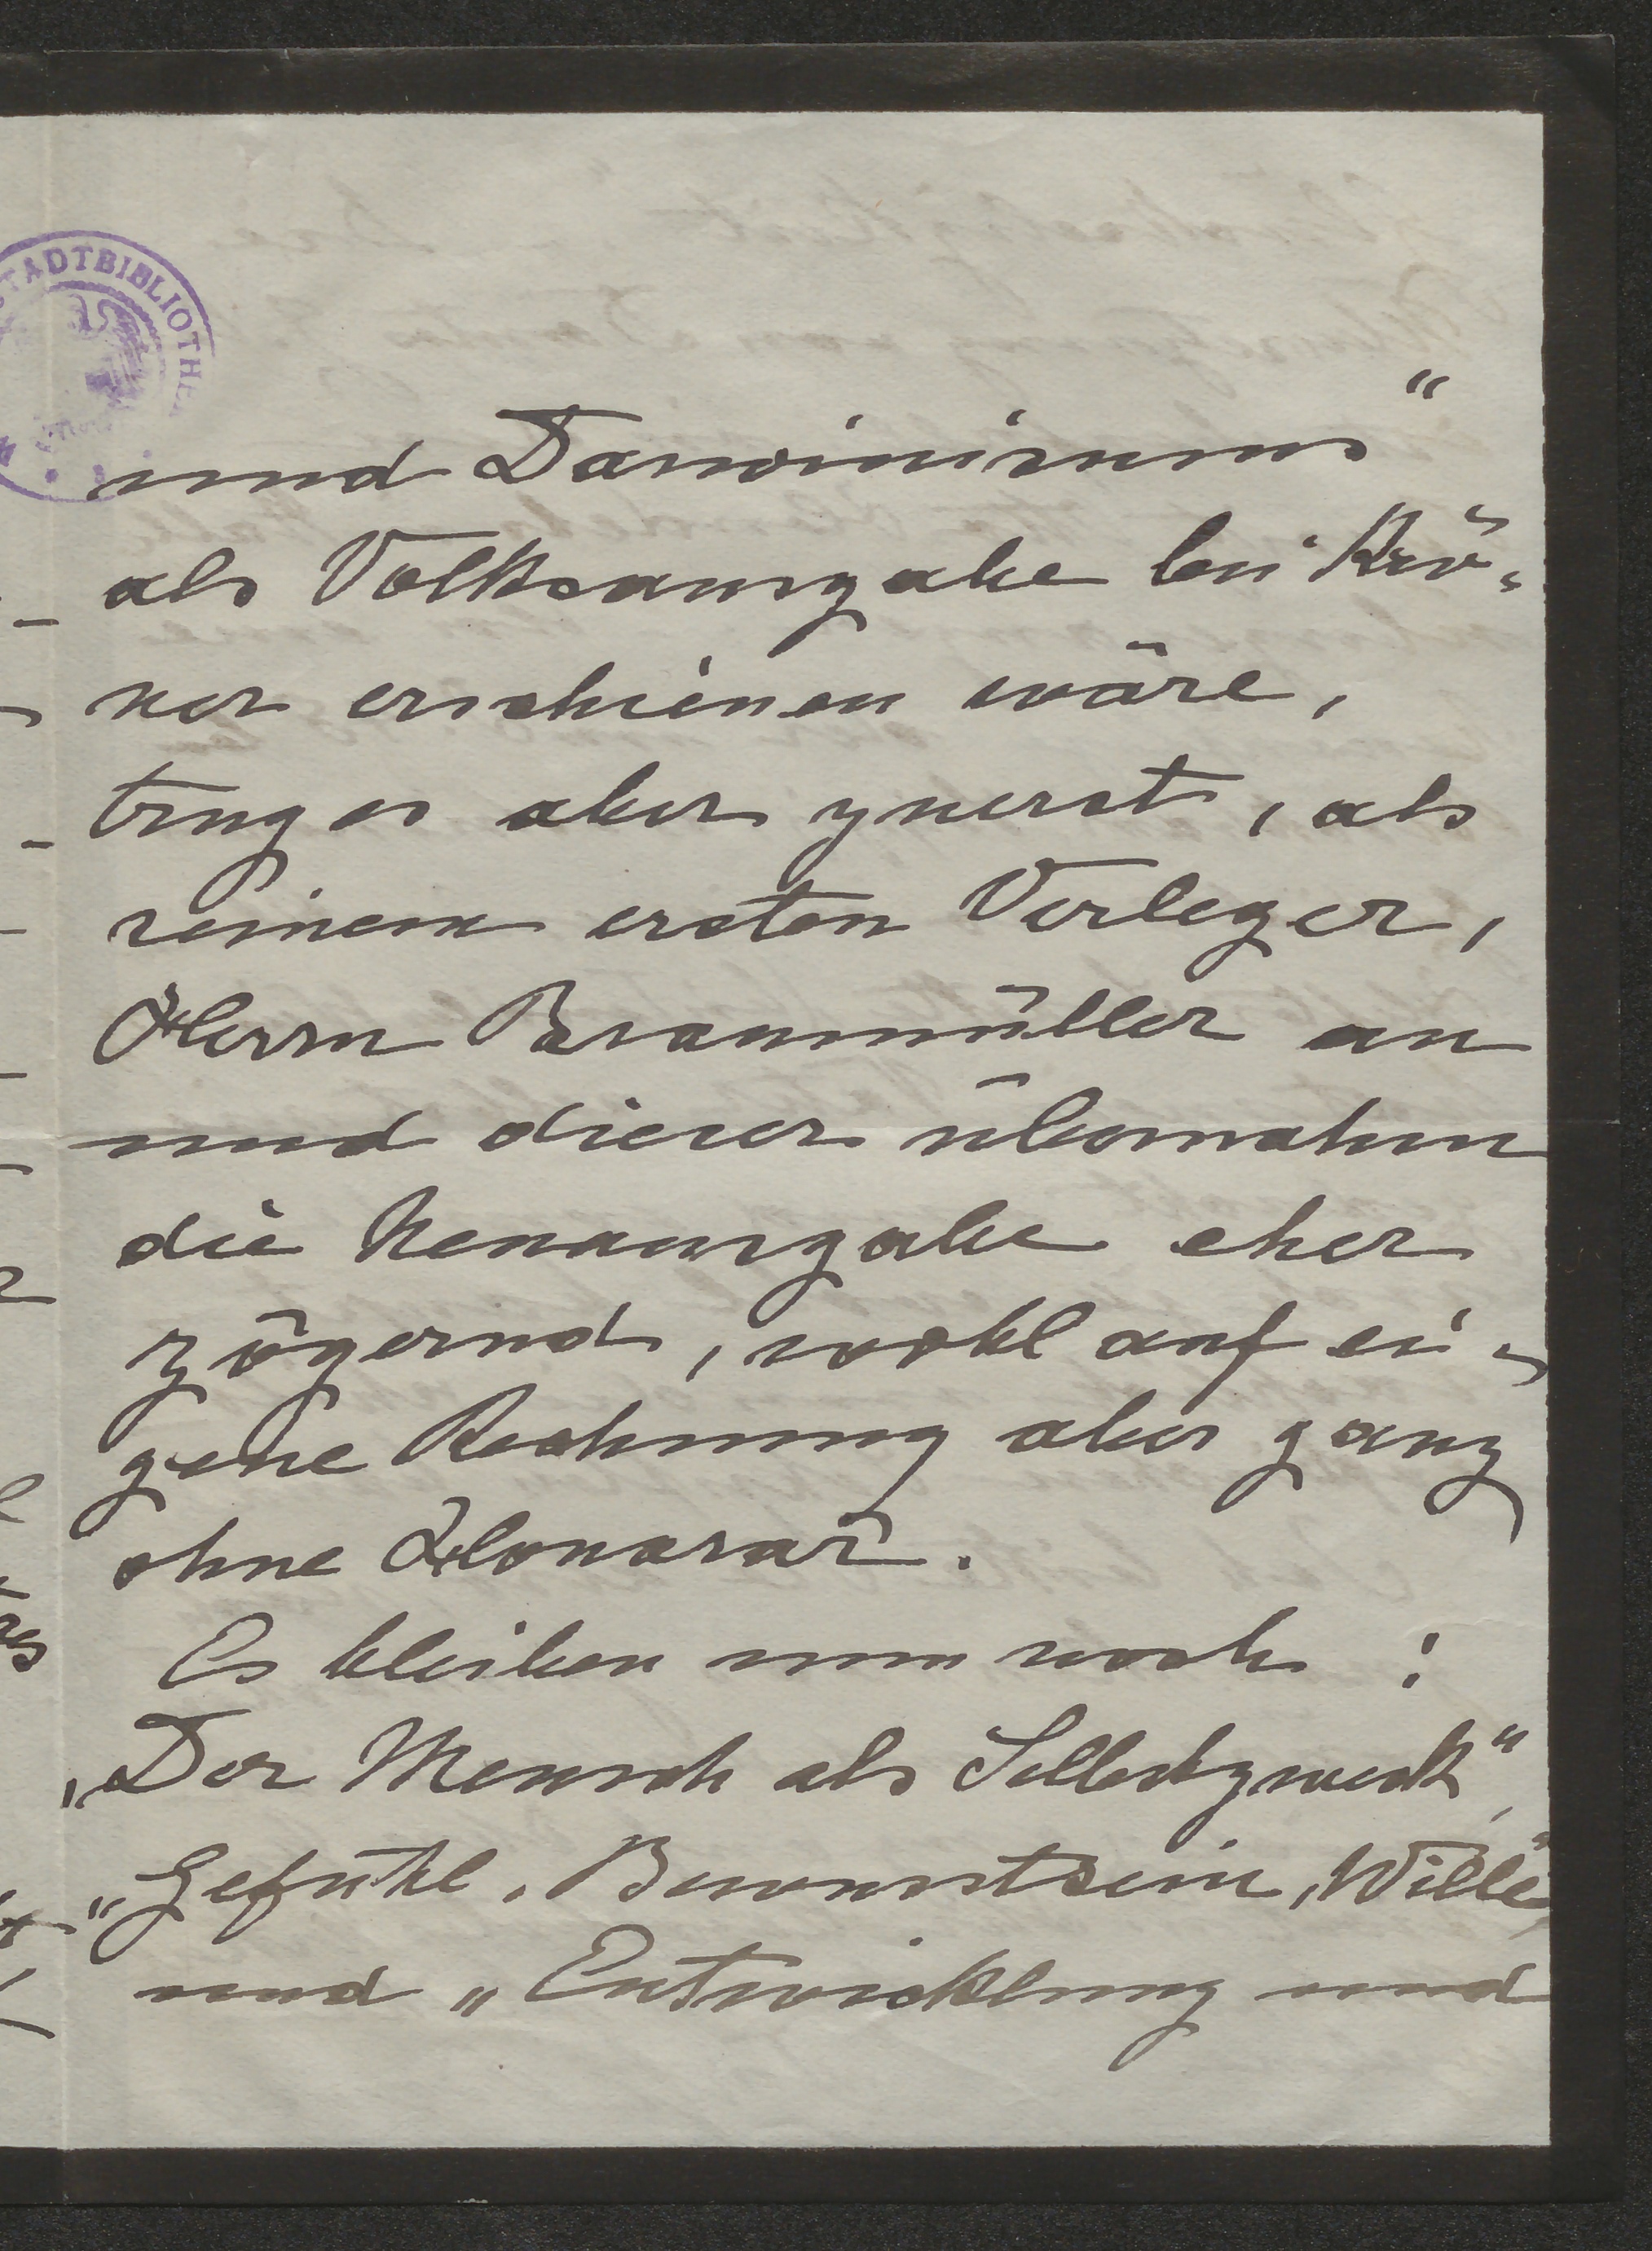 STADTBIBLIOTHEK
und Darwinismus"
als Volksausgabe bei Krö-
ner erschienen wäre,
trug es aber zuerst, als
seinem ersten Verleger,
Herrn Braumüller an
und dieser übernahm
die Neuausgabe eher
zögernd, wohl auf ei-
gene Rechnung aber ganz
ohne Honorar.
Es bleiben nun noch :
„Der Mensch als Selbstzweck",
„Gefühl, Bewusstsein, Wille",
und „Entwicklung und